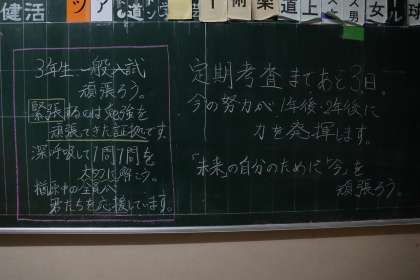 健 活 ツ ア 道 学 術 楽 道 上 ス 男 女 ル 球
3年生 一般入試
頑張ろう。
緊張するのは勉強を
頑張ってきた証拠です。
深呼吸して1問1問を
大切に解こう。
橿原中の全員が
君たちを応援しています。
定期考査まであと3日。
今の努力が1年後・2年後に
力を発揮します。
「未来」の自分のために「今」を
頑張ろう。